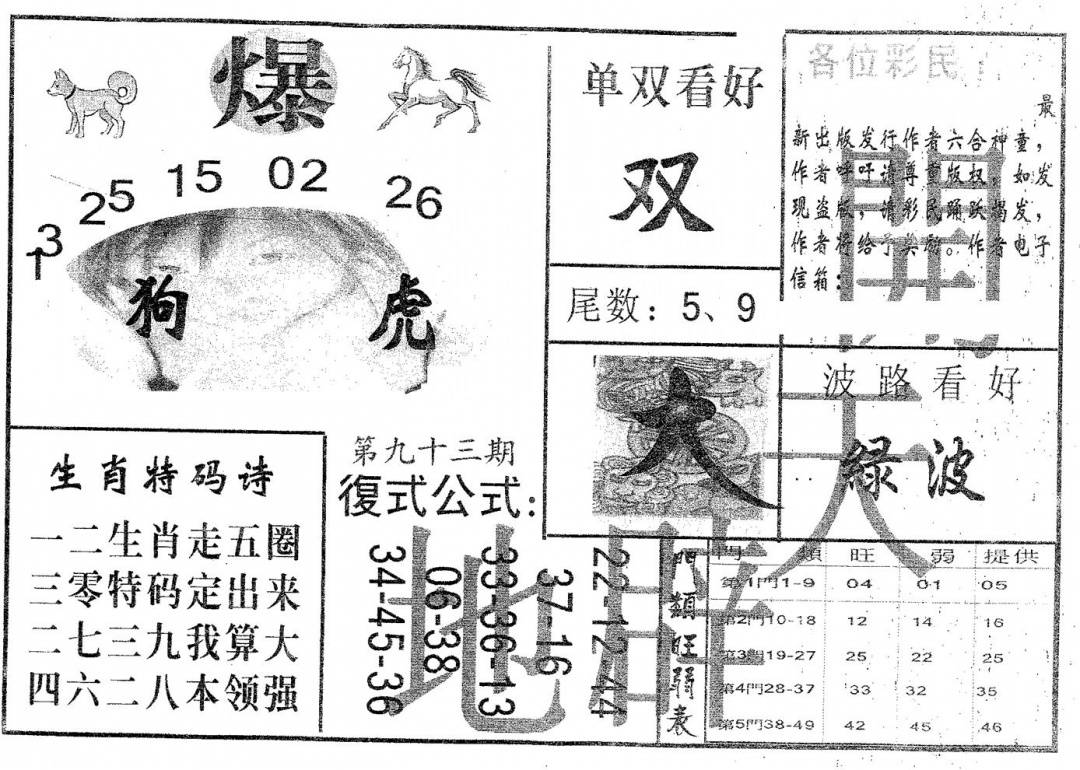 爆
13
25
15
02
26
狗
虎
单双看好
双
尾数：5、9
大
各位彩民：
最
新出版发行作者六合神童，
作者呼吁请尊重版权，如发
现盗版，请彩民踊跃揭发，
作者将给予奖励。作者电子
信箱：
開
天
地
波路看好
緑波
生肖特码诗
一二生肖走五圈
三零特码定出来
二七三九我算大
四六二八本领强
第九十三期
復式公式：
34-45-36
06-38
33-36-13
37-16
22-12-44
門類旺弱表
門 類 旺 弱 提供
第1門1-9 04 01 05
第2門10-18 12 14 16
第3門19-27 25 22 25
第4門28-37 33 32 35
第5門38-49 42 45 46